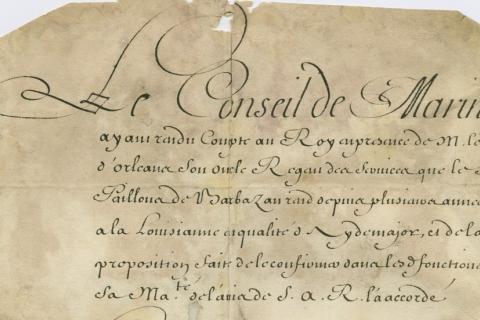 Le Conseil de Marin
ayant rendu Compte au Roy en presence de M. le
d'orleans son oncle Regent des Services que le S
Paillou de Barbazan rend depuis plusieurs année
a la Louisianne en qualité d'Aydemajor, et de la
proposition faite de le confirmer dans les d. fonction
Sa Ma.té de l'avis de S. A. R. l'a accordé